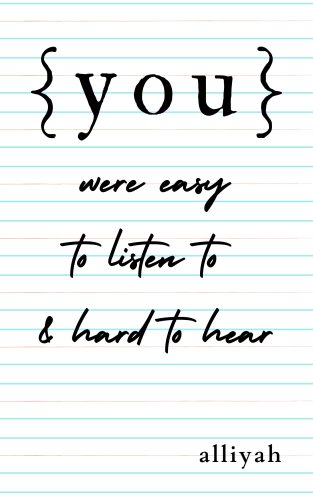 {you}
were easy
to listen to
& hard to hear
alliyah